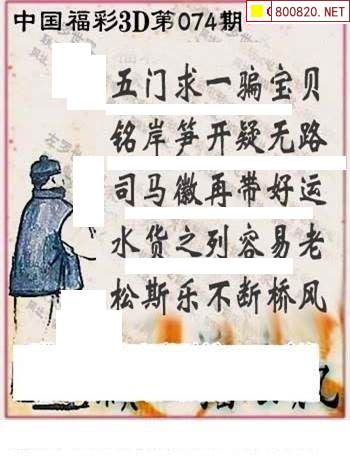 800820.NET
中国福彩3D第074期
五门求一骗宝贝
铭岸笋开疑无路
司马徽再带好运
水货之列容易老
松斯乐不断桥风